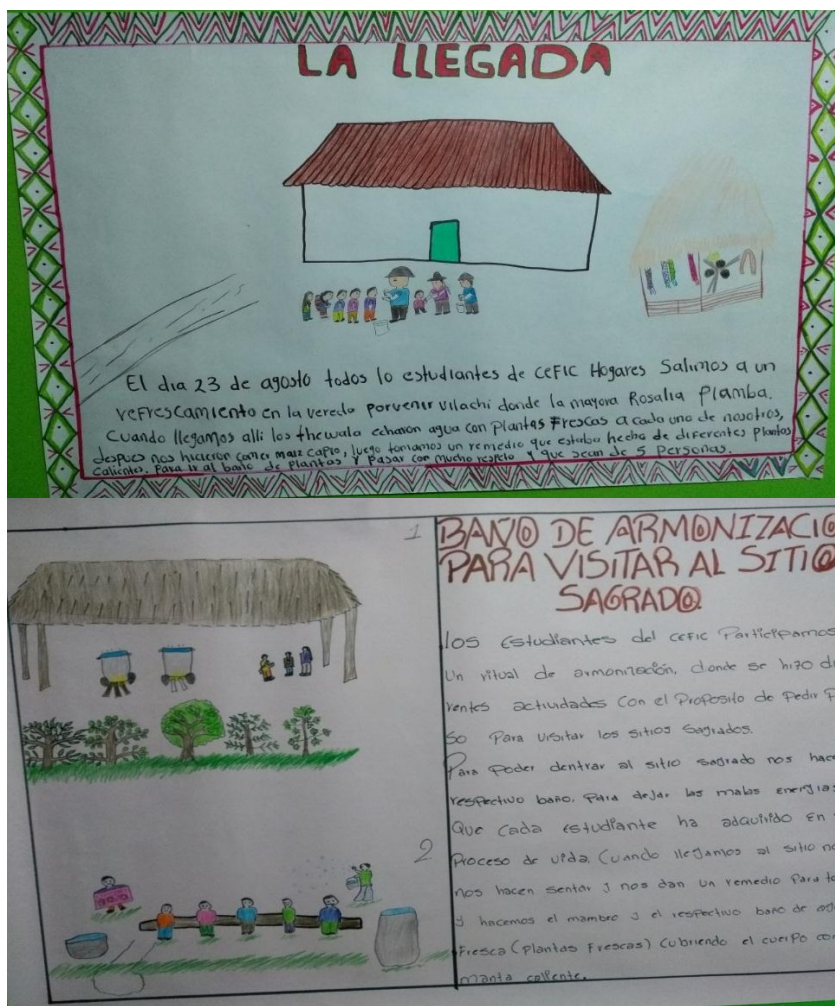 LA LLEGADA
El dia 23 de agosto todos lo estudiantes de CEFIC Hogares Salimos a un
refrescamiento en la vereda porvenir vilachi donde la mayora Rosalia Plamba.
Cuando llegamos alli los thewala echaron agua con plantas Frescas a cada uno de nosotros,
despues nos hicieron comer maiz capio, luego tomamos un remedio que estaba hecho de diferentes plantas
calientes. Para ir al baño de plantas y Pasar con mucho respeto y que sean de 5 Personas.
1
BAÑO DE ARMONIZACIO
PARA VISITAR AL SITIO
SAGRADO
los Estudiantes del CEFIC Participamos
Un ritual de armonización, donde se hizo di
rentes actividades Con el Proposito de Pedir P
so Para visitar los sitios Sagrados.
Para Poder dentrar al sitio sagrado nos hace
respectivo baño, Para dejar las malas energias
Que Cada estudiante ha adquirido En
2
Proceso de vida. Cuando llegamos al sitio no
nos hacen sentar y nos dan un remedio Para to
y hacemos el mambeo y el respectivo baño de ag
Fresca (Plantas Frescas) Cubriendo el cuerpo con
manta caliente.